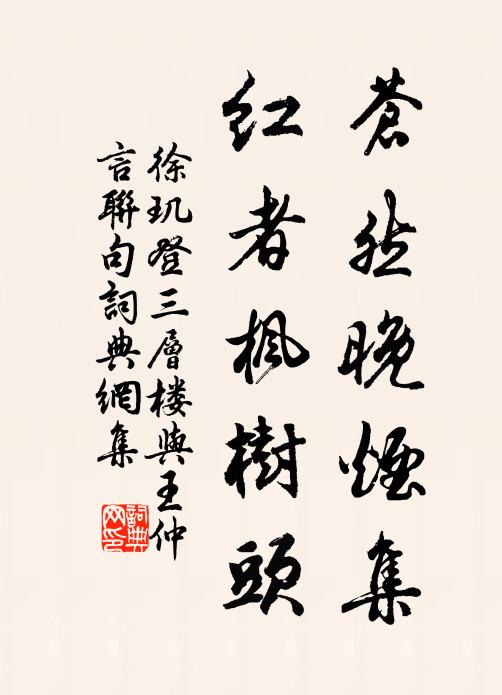 蒼然晚煙集
紅者楓樹頭
徐璣登三層楼與王仲
言聯句詞典網集
詞典
网印